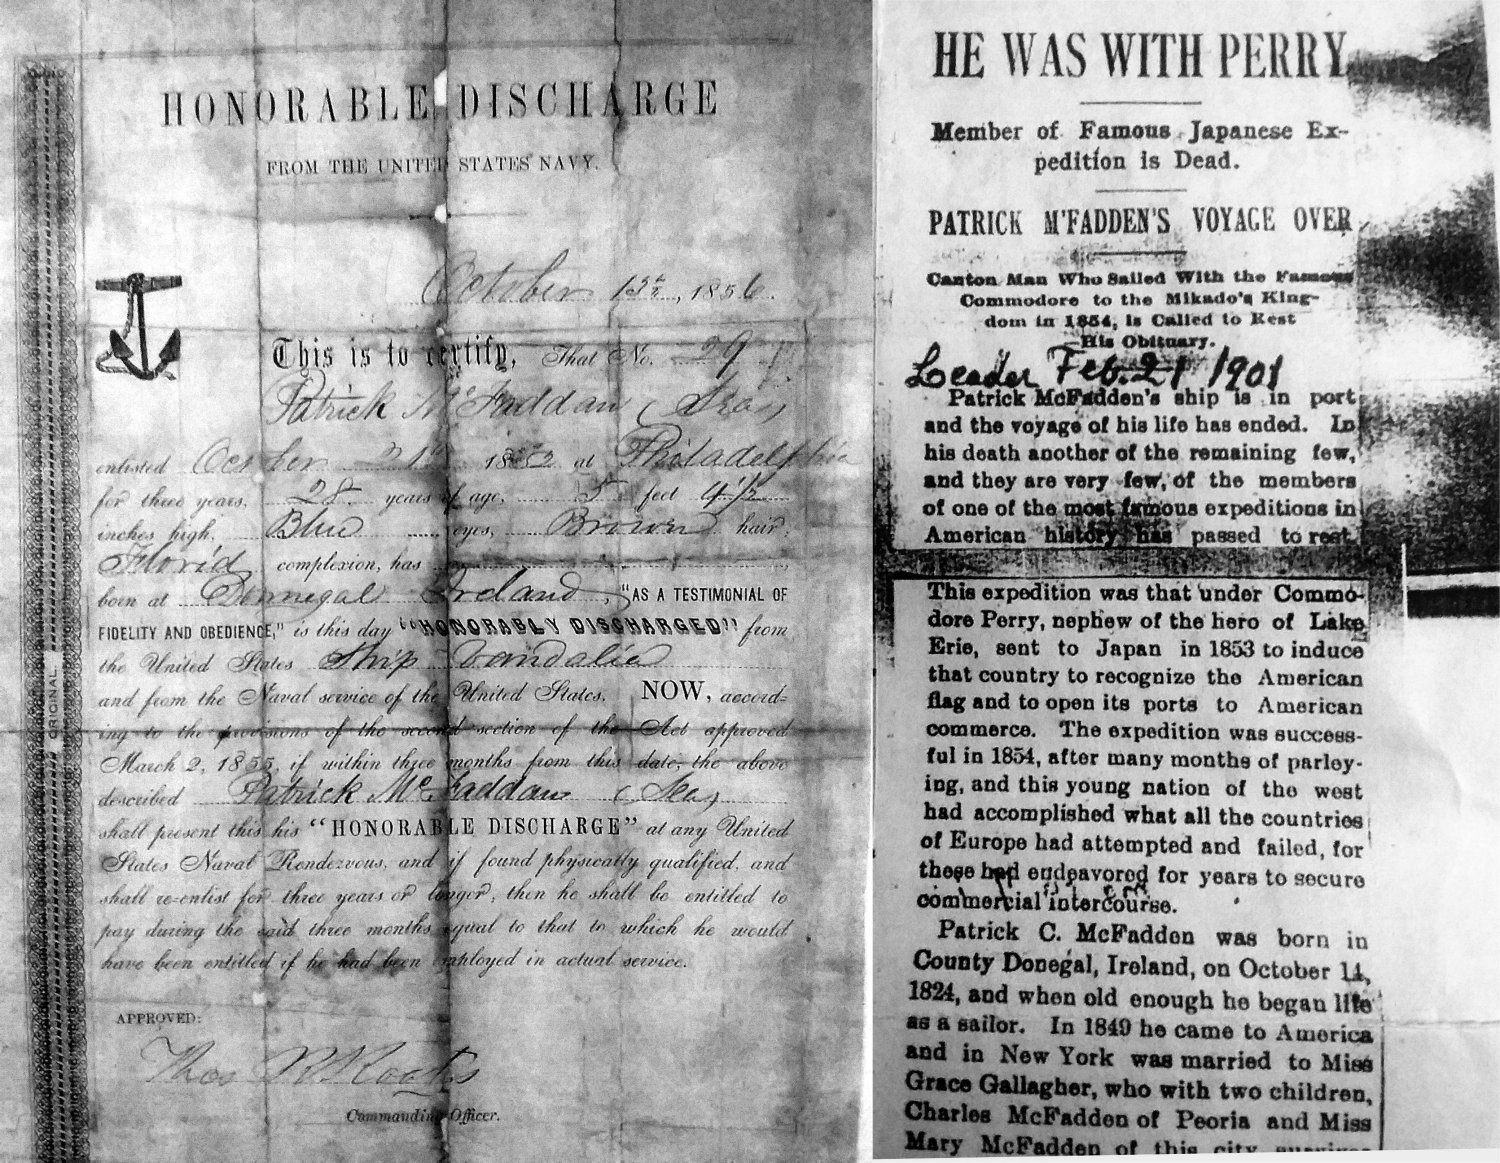 HONORABLE DISCHARGE
FROM THE UNITED STATES NAVY.
October 13th, 1856.
This is to certify, That No. 29
Patrick McFaddan (Sea)
enlisted October 21st 1852 at Philadelphia
for three years, 28 years of age, 5 feet 4 1/2
inches high, Blue eyes, Brown hair,
Florid complexion, has
born at Donnegal Ireland, "AS A TESTIMONIAL OF
FIDELITY AND OBEDIENCE," is this day "HONORABLY DISCHARGED" from
the United States Ship Vandalia
and from the Naval service of the United States. NOW, accord-
ing to the provisions of the second section of the Act approved
March 2, 1855, if within three months from this date, the above
described Patrick McFaddan (Sea)
shall present this his "HONORABLE DISCHARGE" at any United
States Naval Rendezvous, and if found physically qualified, and
shall re-enlist for three years or longer, then he shall be entitled to
pay during the said three months equal to that to which he would
have been entitled if he had been employed in actual service.
APPROVED:
Thos R Roots
Commanding Officer.
ORIGINAL
HE WAS WITH PERRY
Member of Famous Japanese Ex-
pedition is Dead.
PATRICK M'FADDEN'S VOYAGE OVER
Canton Man Who Sailed With the Famous
Commodore to the Mikado's King-
dom in 1854, is Called to Rest
—His Obituary.
Leader Feb. 21 1901
Patrick McFadden's ship is in port
and the voyage of his life has ended. In
his death another of the remaining few,
and they are very few, of the members
of one of the most famous expeditions in
American history has passed to rest.
This expedition was that under Commo-
dore Perry, nephew of the hero of Lake
Erie, sent to Japan in 1853 to induce
that country to recognize the American
flag and to open its ports to American
commerce. The expedition was success-
ful in 1854, after many months of parley-
ing, and this young nation of the west
had accomplished what all the countries
of Europe had attempted and failed, for
these had endeavored for years to secure
commercial intercourse.
Patrick C. McFadden was born in
County Donegal, Ireland, on October 14,
1824, and when old enough he began life
as a sailor. In 1849 he came to America
and in New York was married to Miss
Grace Gallagher, who with two children,
Charles McFadden of Peoria and Miss
Mary McFadden of this city